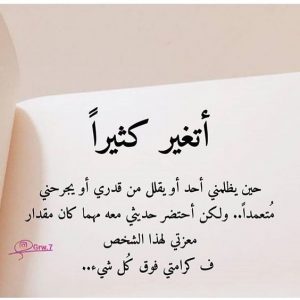 أتغير كثيراً
حين يظلمني أحد أو يقلل من قدري أو يجرحني
مُتعمداً.. ولكن أحتضر حديثي معه مهما كان مقدار
معزتي لهذا الشخص
ف كرامتي فوق كُل شيء..
Grw.7